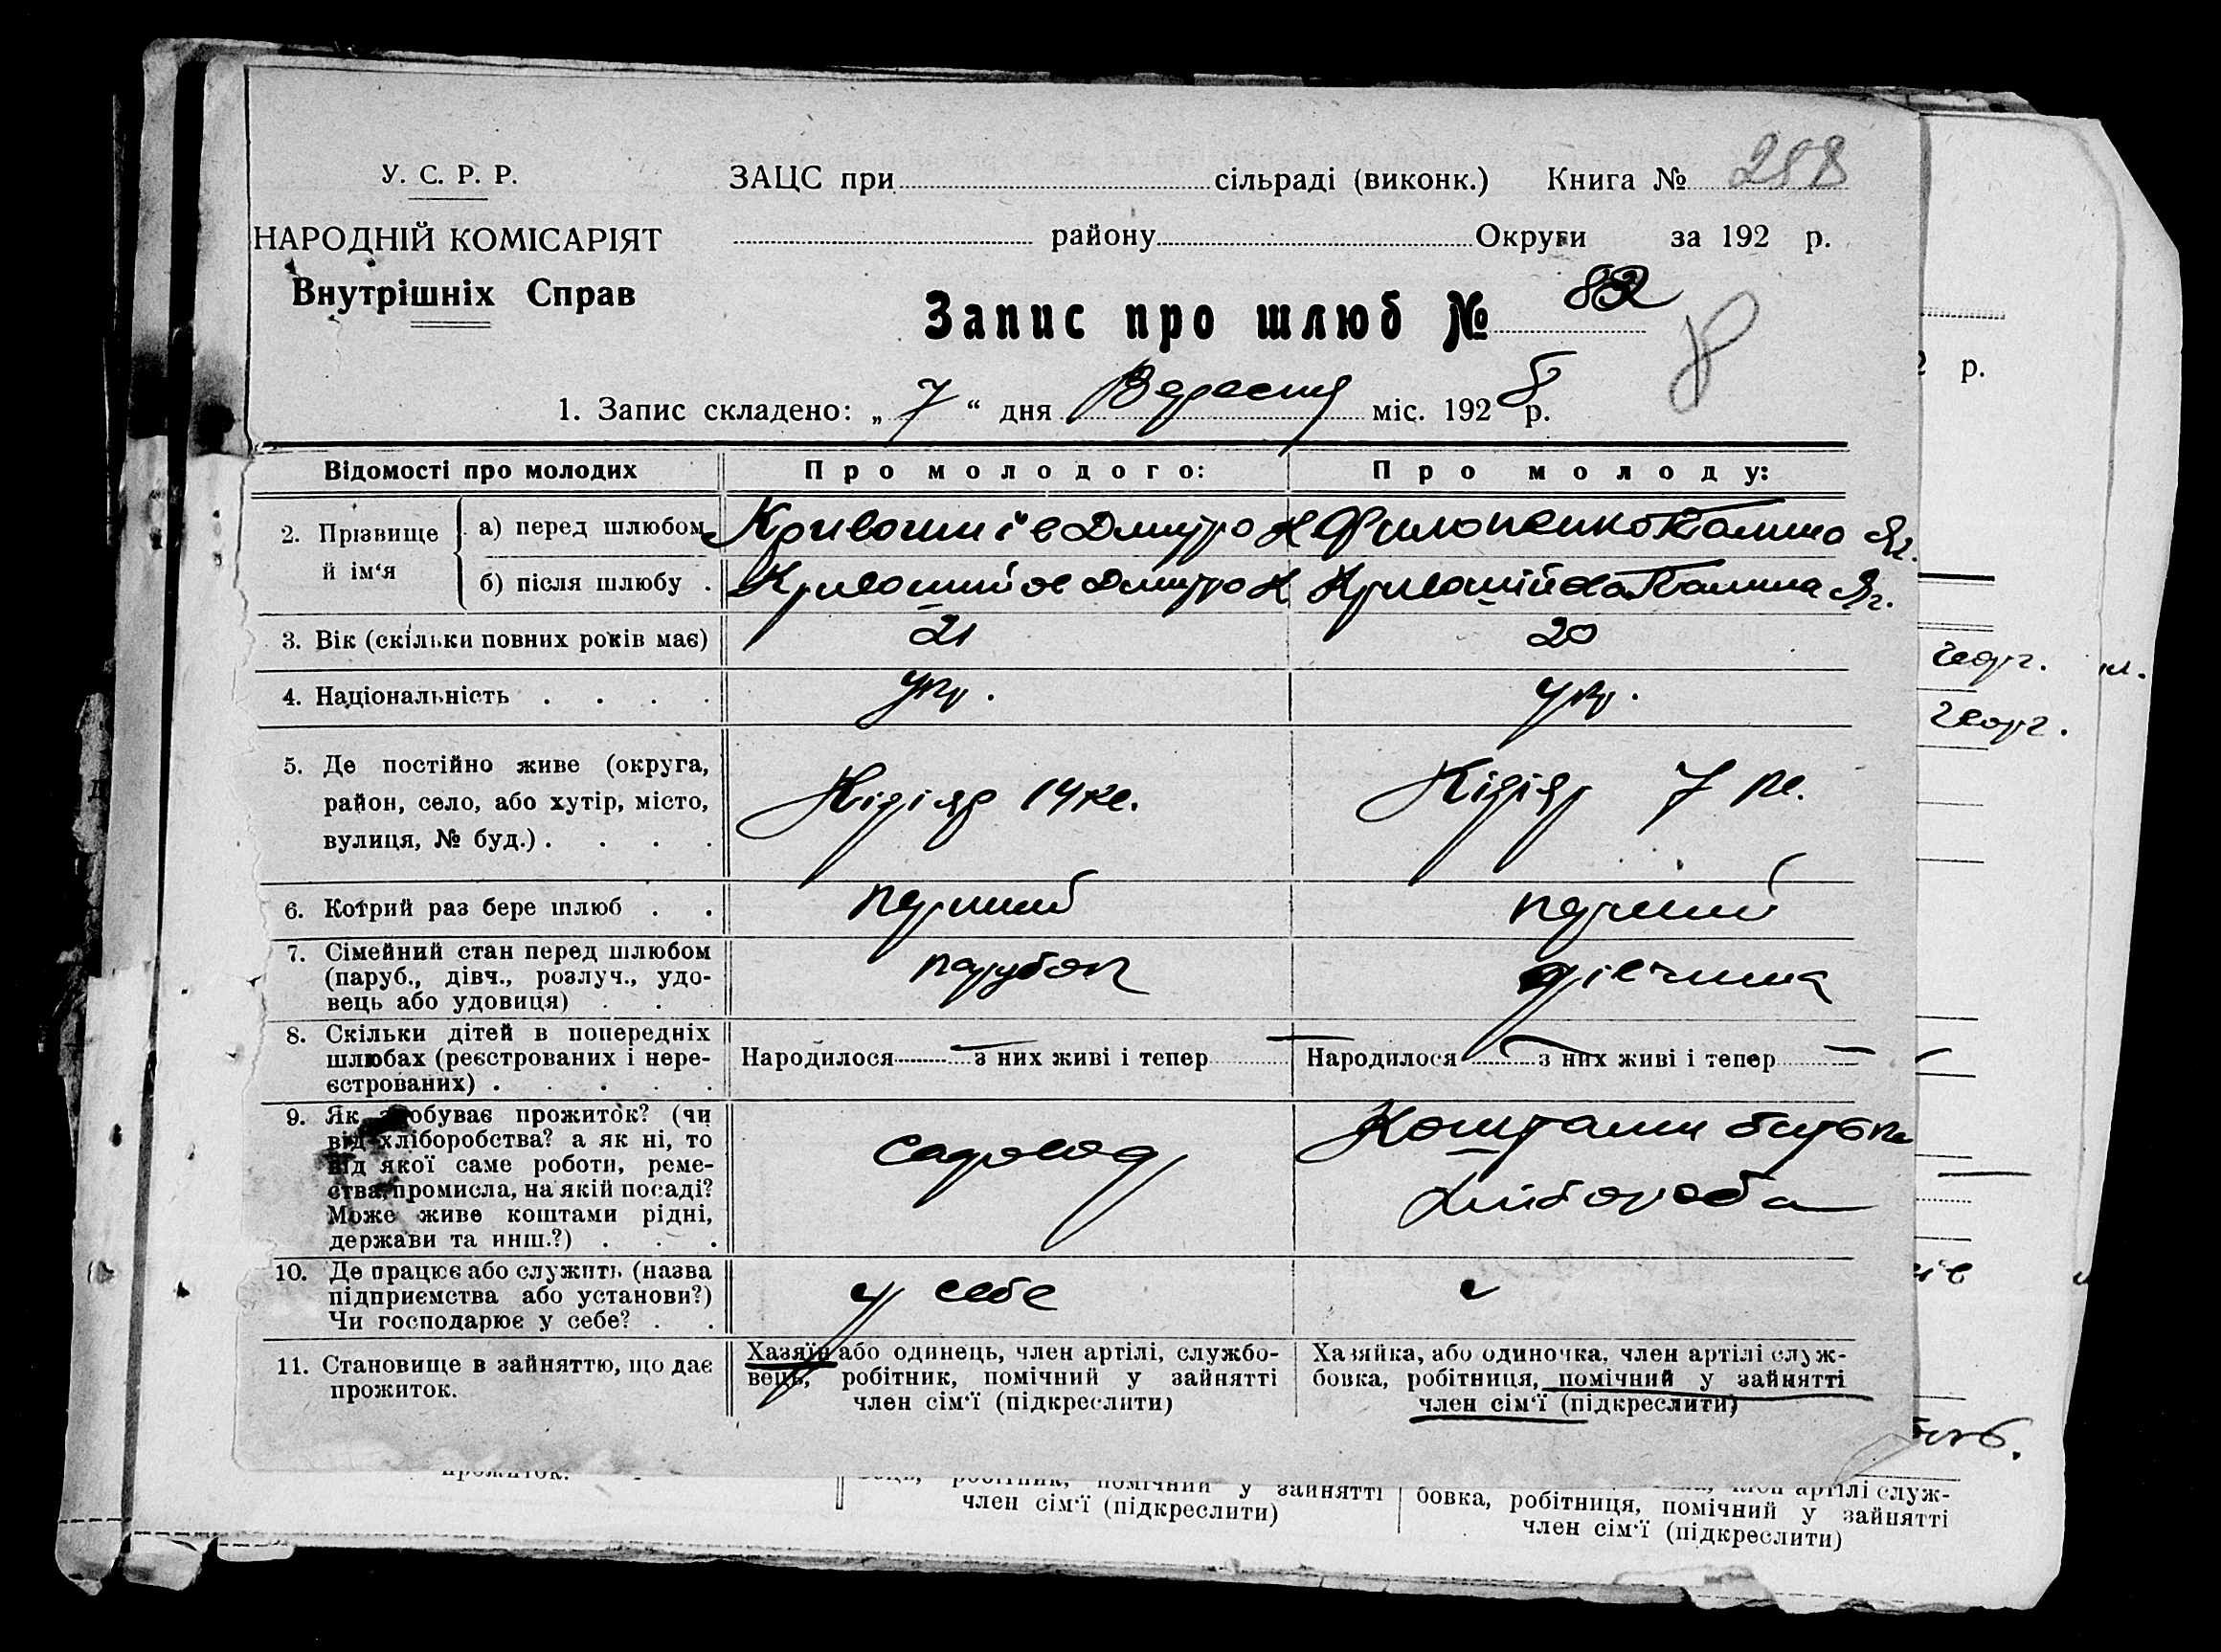 У. С. Р. Р.
НАРОДНІЙ КОМІСАРІЯТ
Внутрішніх Справ
ЗАЦС при сільраді (виконк.) Книга № 258
району Округи за 192 р.
Запис про шлюб № 82
8
1. Запис складено: „ 7 “ дня Вересня міс. 192 8 р.
Відомості про молодих
Про молодого:
Про молоду:
2. Прізвище й ім‘я
а) перед шлюбом
Кривошиїв Дмитро К
Филопенко Галина Яг.
б) після шлюбу .
Кривоший ов Дмитро К
Кривошійова Галина Яг.
3. Вік (скільки повних років має)
21
20
4. Національність . . . .
укр.
укр.
5. Де постійно живе (округа,
район, село, або хутір, місто,
вулиця, № буд.) . . . .
Кідіяр 14 кв.
Кідіяр 7 кв.
6. Котрий раз бере шлюб . .
перший
перший
7. Сімейний стан перед шлюбом
(паруб., дівч., розлуч., удо-
вець або удовиця) . .
парубок
дівчина
8. Скільки дітей в попередніх
шлюбах (реєстрованих і нере-
єстрованих) . . . . .
Народилося — з них живі і тепер —
Народилося — з них живі і тепер —
9. Як здобуває прожиток? (чи
від хліборобства? а як ні, то
від якої саме роботи, реме-
ства, промисла, на якій посаді?
Може живе коштами рідні,
держави та инш.?) . . .
садовод
Коштами батька
хлібороба
10. Де працює або служить (назва
підприємства або установи?)
Чи господарює у себе? . .
у себе
11. Становище в зайняттю, що дає
прожиток.
Хазяїн або одинець, член артілі, службо-
вець, робітник, помічний у зайнятті
член сім‘ї (підкреслити)
Хазяйка, або одиночка, член артілі служ-
бовка, робітниця, помічний у зайнятті
член сім‘ї (підкреслити)
р.
прожиток.
робітник, помічний у зайнятті
член сім‘ї (підкреслити)
артілі служ-
бовка, робітниця, помічний у зайнятті
член сім‘ї (підкреслити)